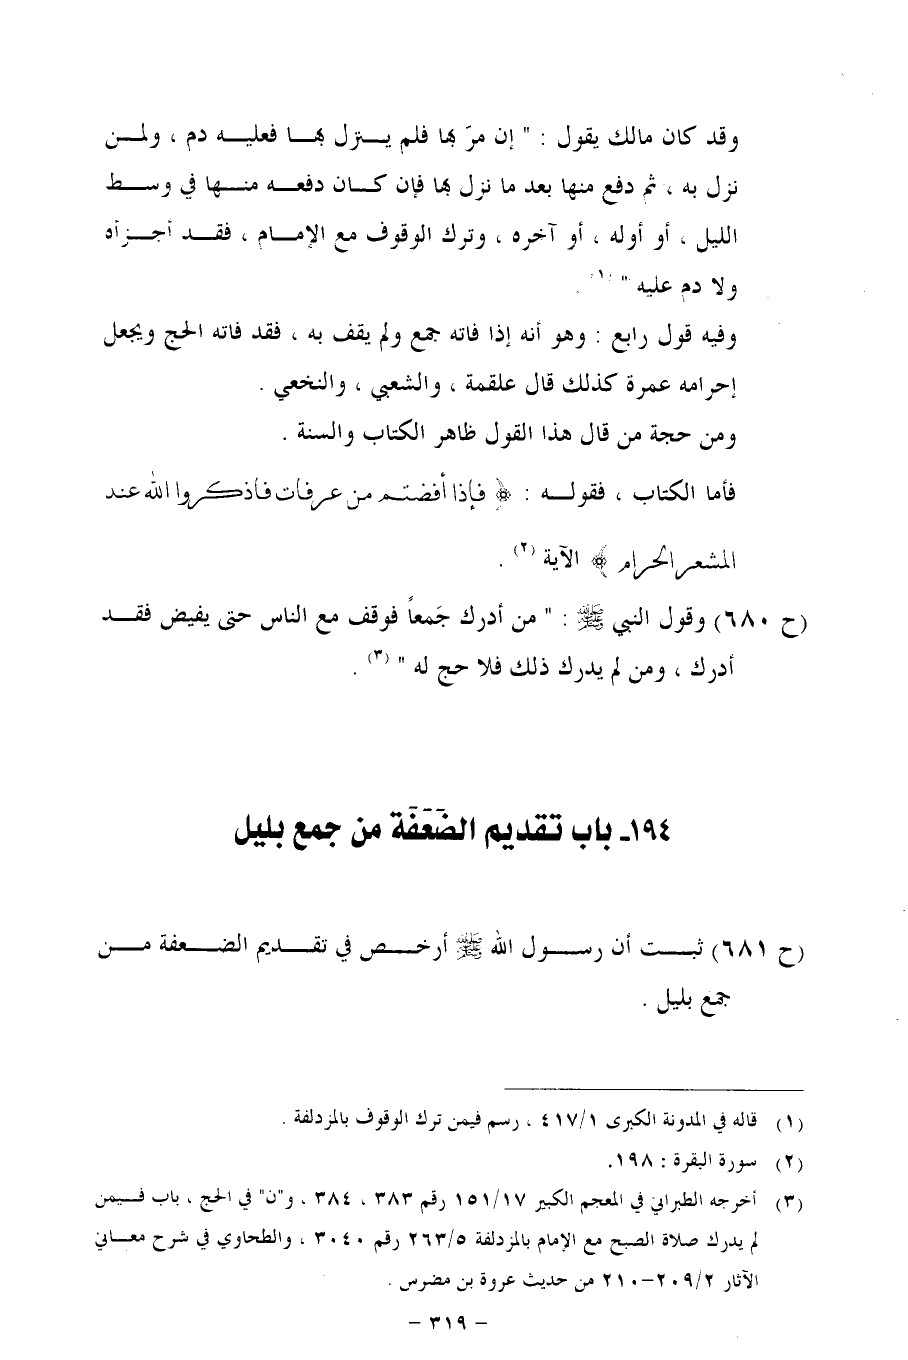 وقد كان مالك يقول : " إن مرّ بها فلم ينزل بها فعليه دم ، ولمن
نزل به ، ثم دفع منها بعد ما نزل بها فإن كان دفعه منها في وسط
الليل ، أو أوله ، أو آخره ، وترك الوقوف مع الإمام ، فقد أجزأه
ولا دم عليه " (١) .
وفيه قول رابع : وهو أنه إذا فاته جمع ولم يقف به ، فقد فاته الحج ويجعل
إحرامه عمرة كذلك قال علقمة ، والشعبي ، والنخعي .
ومن حجة من قال هذا القول ظاهر الكتاب والسنة .
فأما الكتاب ، فقوله : ﴿ فإذا أفضتم من عرفات فاذكروا الله عند
المشعر الحرام ﴾ الآية (٢) .
(ح ٦٨٠) وقول النبي ﷺ : " من أدرك جَمعاً فوقف مع الناس حتى يفيض فقد
أدرك ، ومن لم يدرك ذلك فلا حج له " (٣) .
١٩٤ـ باب تقديم الضَعَفَة من جمع بليل
(ح ٦٨١) ثبت أن رسول الله ﷺ أرخص في تقديم الضعفة من
جمع بليل .
(١) قاله في المدونة الكبرى ٤١٧/١ ، رسم فيمن ترك الوقوف بالمزدلفة .
(٢) سورة البقرة : ١٩٨.
(٣) أخرجه الطبراني في المعجم الكبير ١٥١/١٧ رقم ٣٨٣ ، ٣٨٤ ، و"ن" في الحج ، باب فيمن
لم يدرك صلاة الصبح مع الإمام بالمزدلفة ٢٦٣/٥ رقم ٣٠٤٠ ، والطحاوي في شرح معاني
الآثار ٢٠٩/٢-٢١٠ من حديث عروة بن مضرس .
- ٣١٩ -